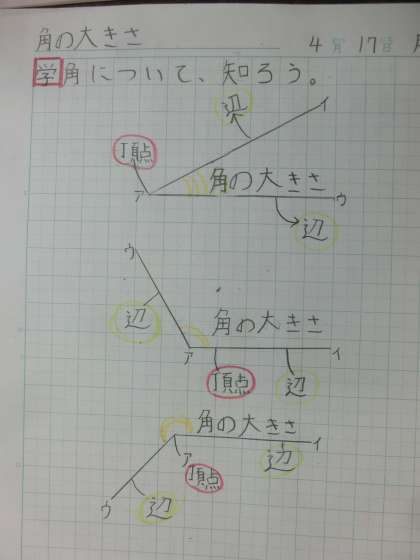 角の大きさ 4月17日
学角について、知ろう。
辺 イ
頂点
ア 角の大きさ ウ
辺
ウ
辺 角の大きさ
ア イ
頂点 辺
角の大きさ
ア 辺 イ
頂点
ウ 辺